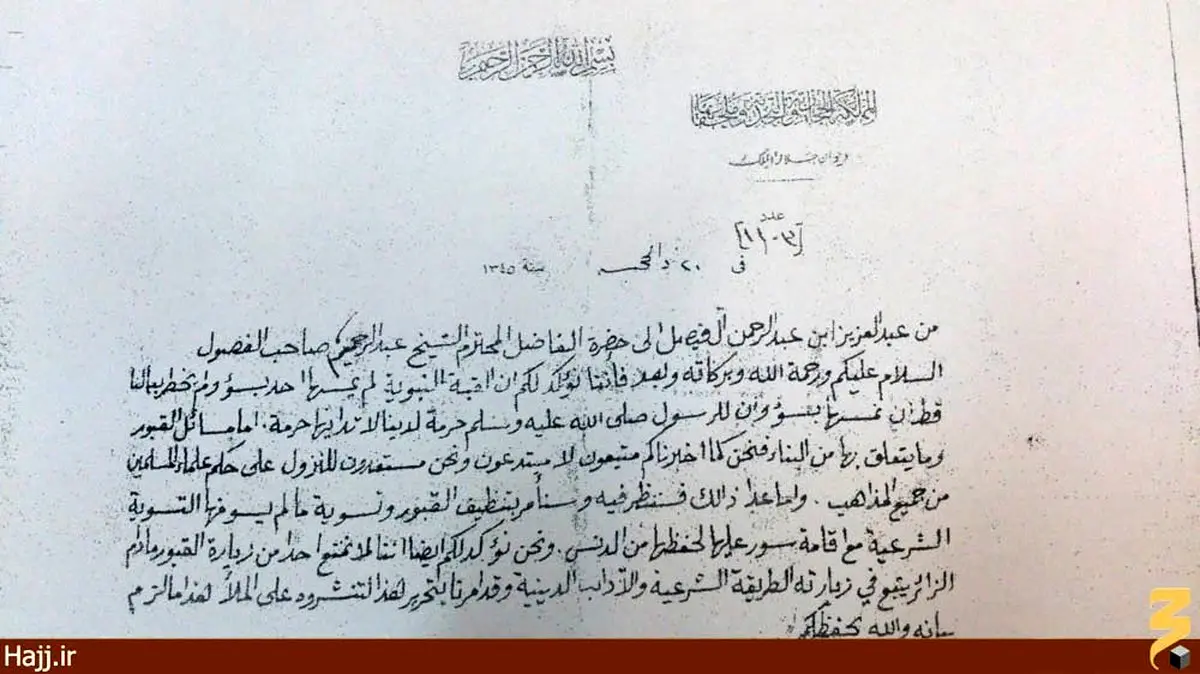 بسم الله الرحمن الرحيم
المملكة الحجازية والنجدية وملحقاتها
ديوان جلالة الملك
عدد
[١١٠٣]
في ٢٠ ذالحجه سنة ١٣٤٥
من عبدالعزيز ابن عبدالرحمن آل فيصل الى حضرة الفاضل المحترم الشيخ عبدالرحيم صاحب الفصول
السلام عليكم ورحمة الله وبركاته وبعد فأننا نؤكد لكم ان القبة النبوية لم يمسها احد بسؤ ولم يخطر ببالنا
قط ان نمسها بسؤ وان للرسول صلى الله عليه وسلم حرمة لدينا لا تدانيها حرمة. اما مسائل القبور
وما يتعلق بها من البناء فنحن كما اخبرناكم متبعون لا مبتدعون ونحن مستعدون للنزول على حكم علماء المسلمين
من جميع المذاهب. واما عدا ذالك فسننظر فيه وسنأمر بتنظيف القبور وتسوية مالم يسوفها التسوية
الشرعية مع اقامة سور عليها لحفظها من الدنس. ونحن نؤكد لكم ايضا اننا لا نمنع احدا من زيارة القبور مادام
الزائر يتبع في زيارته الطريقة الشرعية والآداب الدينية وقد امرنا بتحرير هذا لتنشروه على الملأ لهذا مالزم
بيانه والله يحفظكم
Hajj.ir